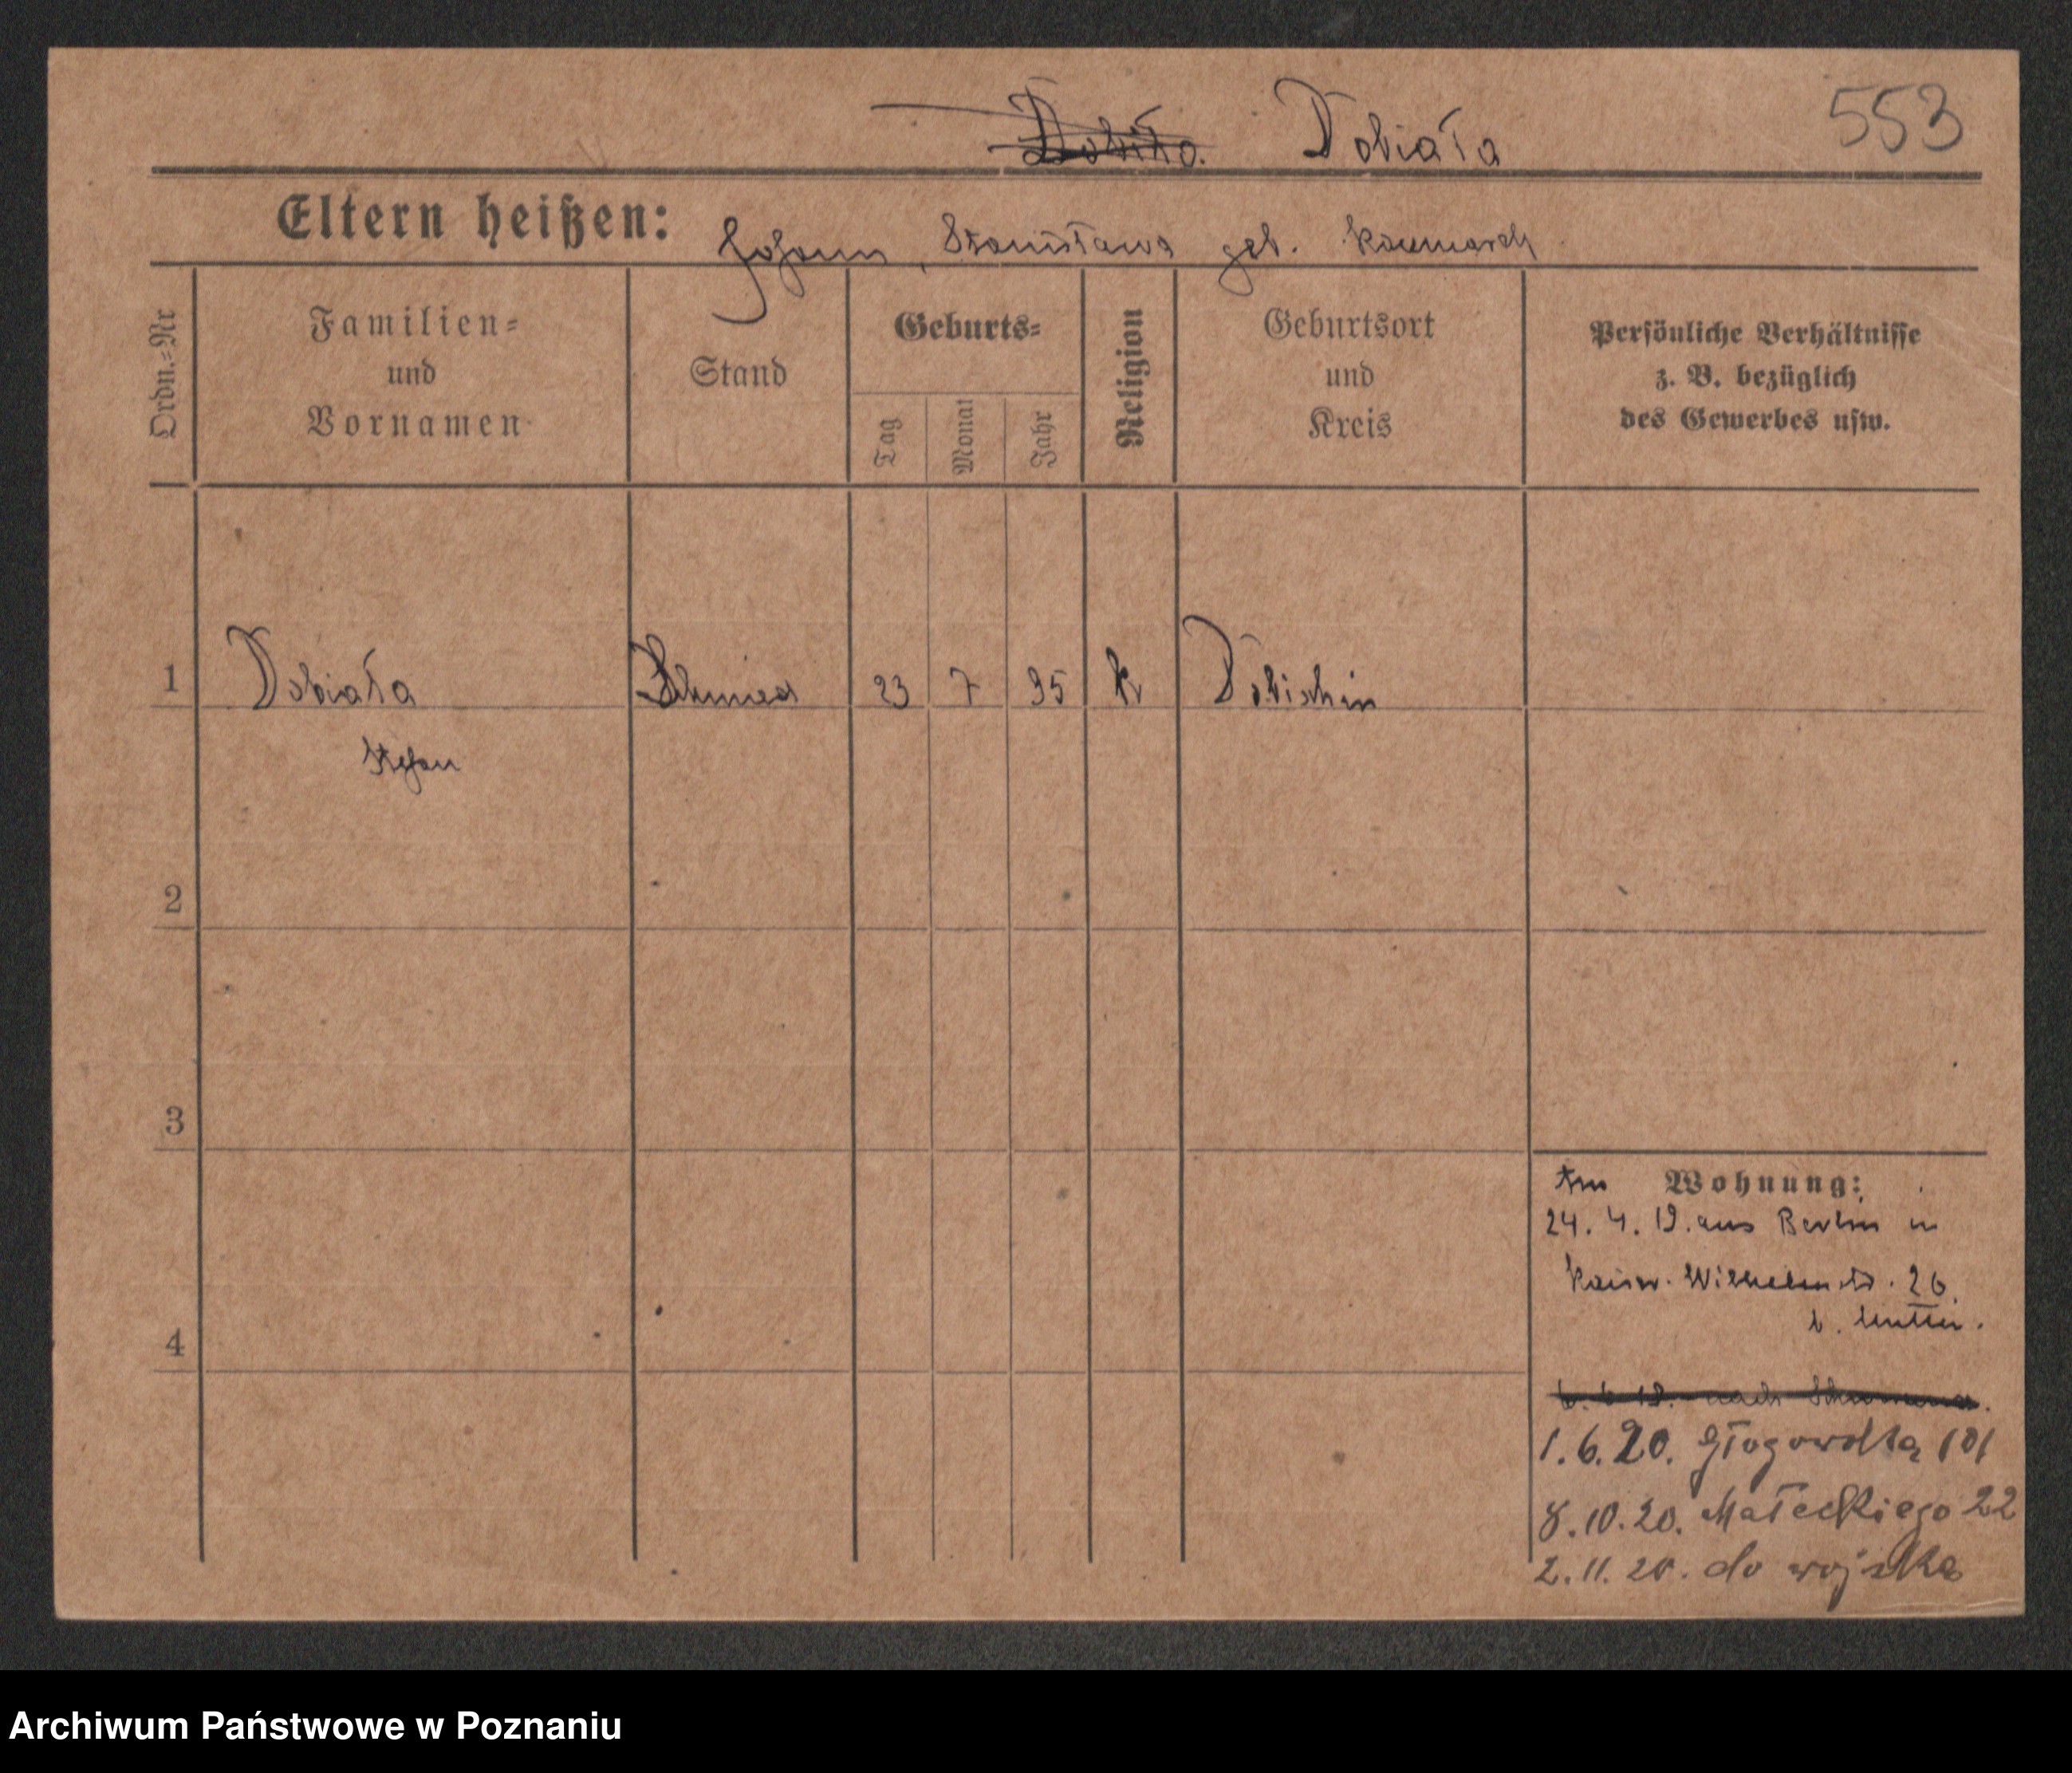 Dobiała 553
Eltern heißen: Johann, Stanisława geb.
Ordn.=Nr
Familien=
und
Vornamen
Stand
Geburts=
Tag
Monat
Jahr
Religion
Geburtsort
und
Kreis
Persönliche Verhältnisse
z. B. bezüglich
des Gewerbes usw.
1 Dobiała Schmied 23 7 95 k Dobischin
Stefan
2
3
4
Am Wohnung:
24. 4. 19. aus Berlin in
Kaiser. Wilhelmstr. 26.
b. Mutter.
6. 6 19. nach
1.6.20. Głogowska 101
8.10.20. Małeckiego 22
2.11.20. do wojska
Archiwum Państwowe w Poznaniu